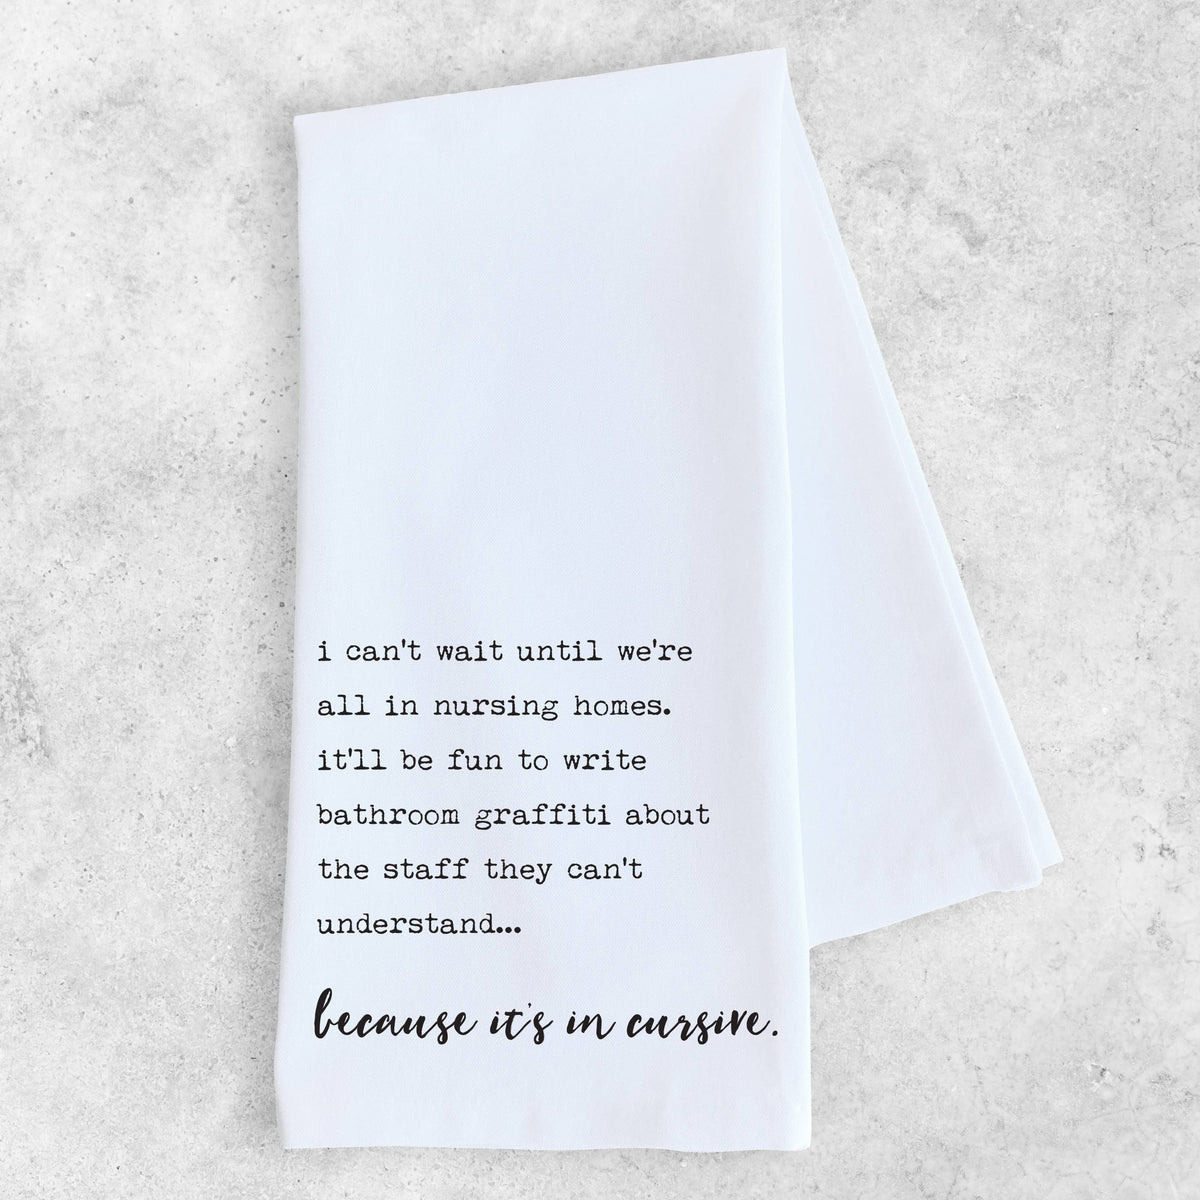 i can't wait until we're
all in nursing homes.
it'll be fun to write
bathroom graffiti about
the staff they can't
understand...
because it's in cursive.